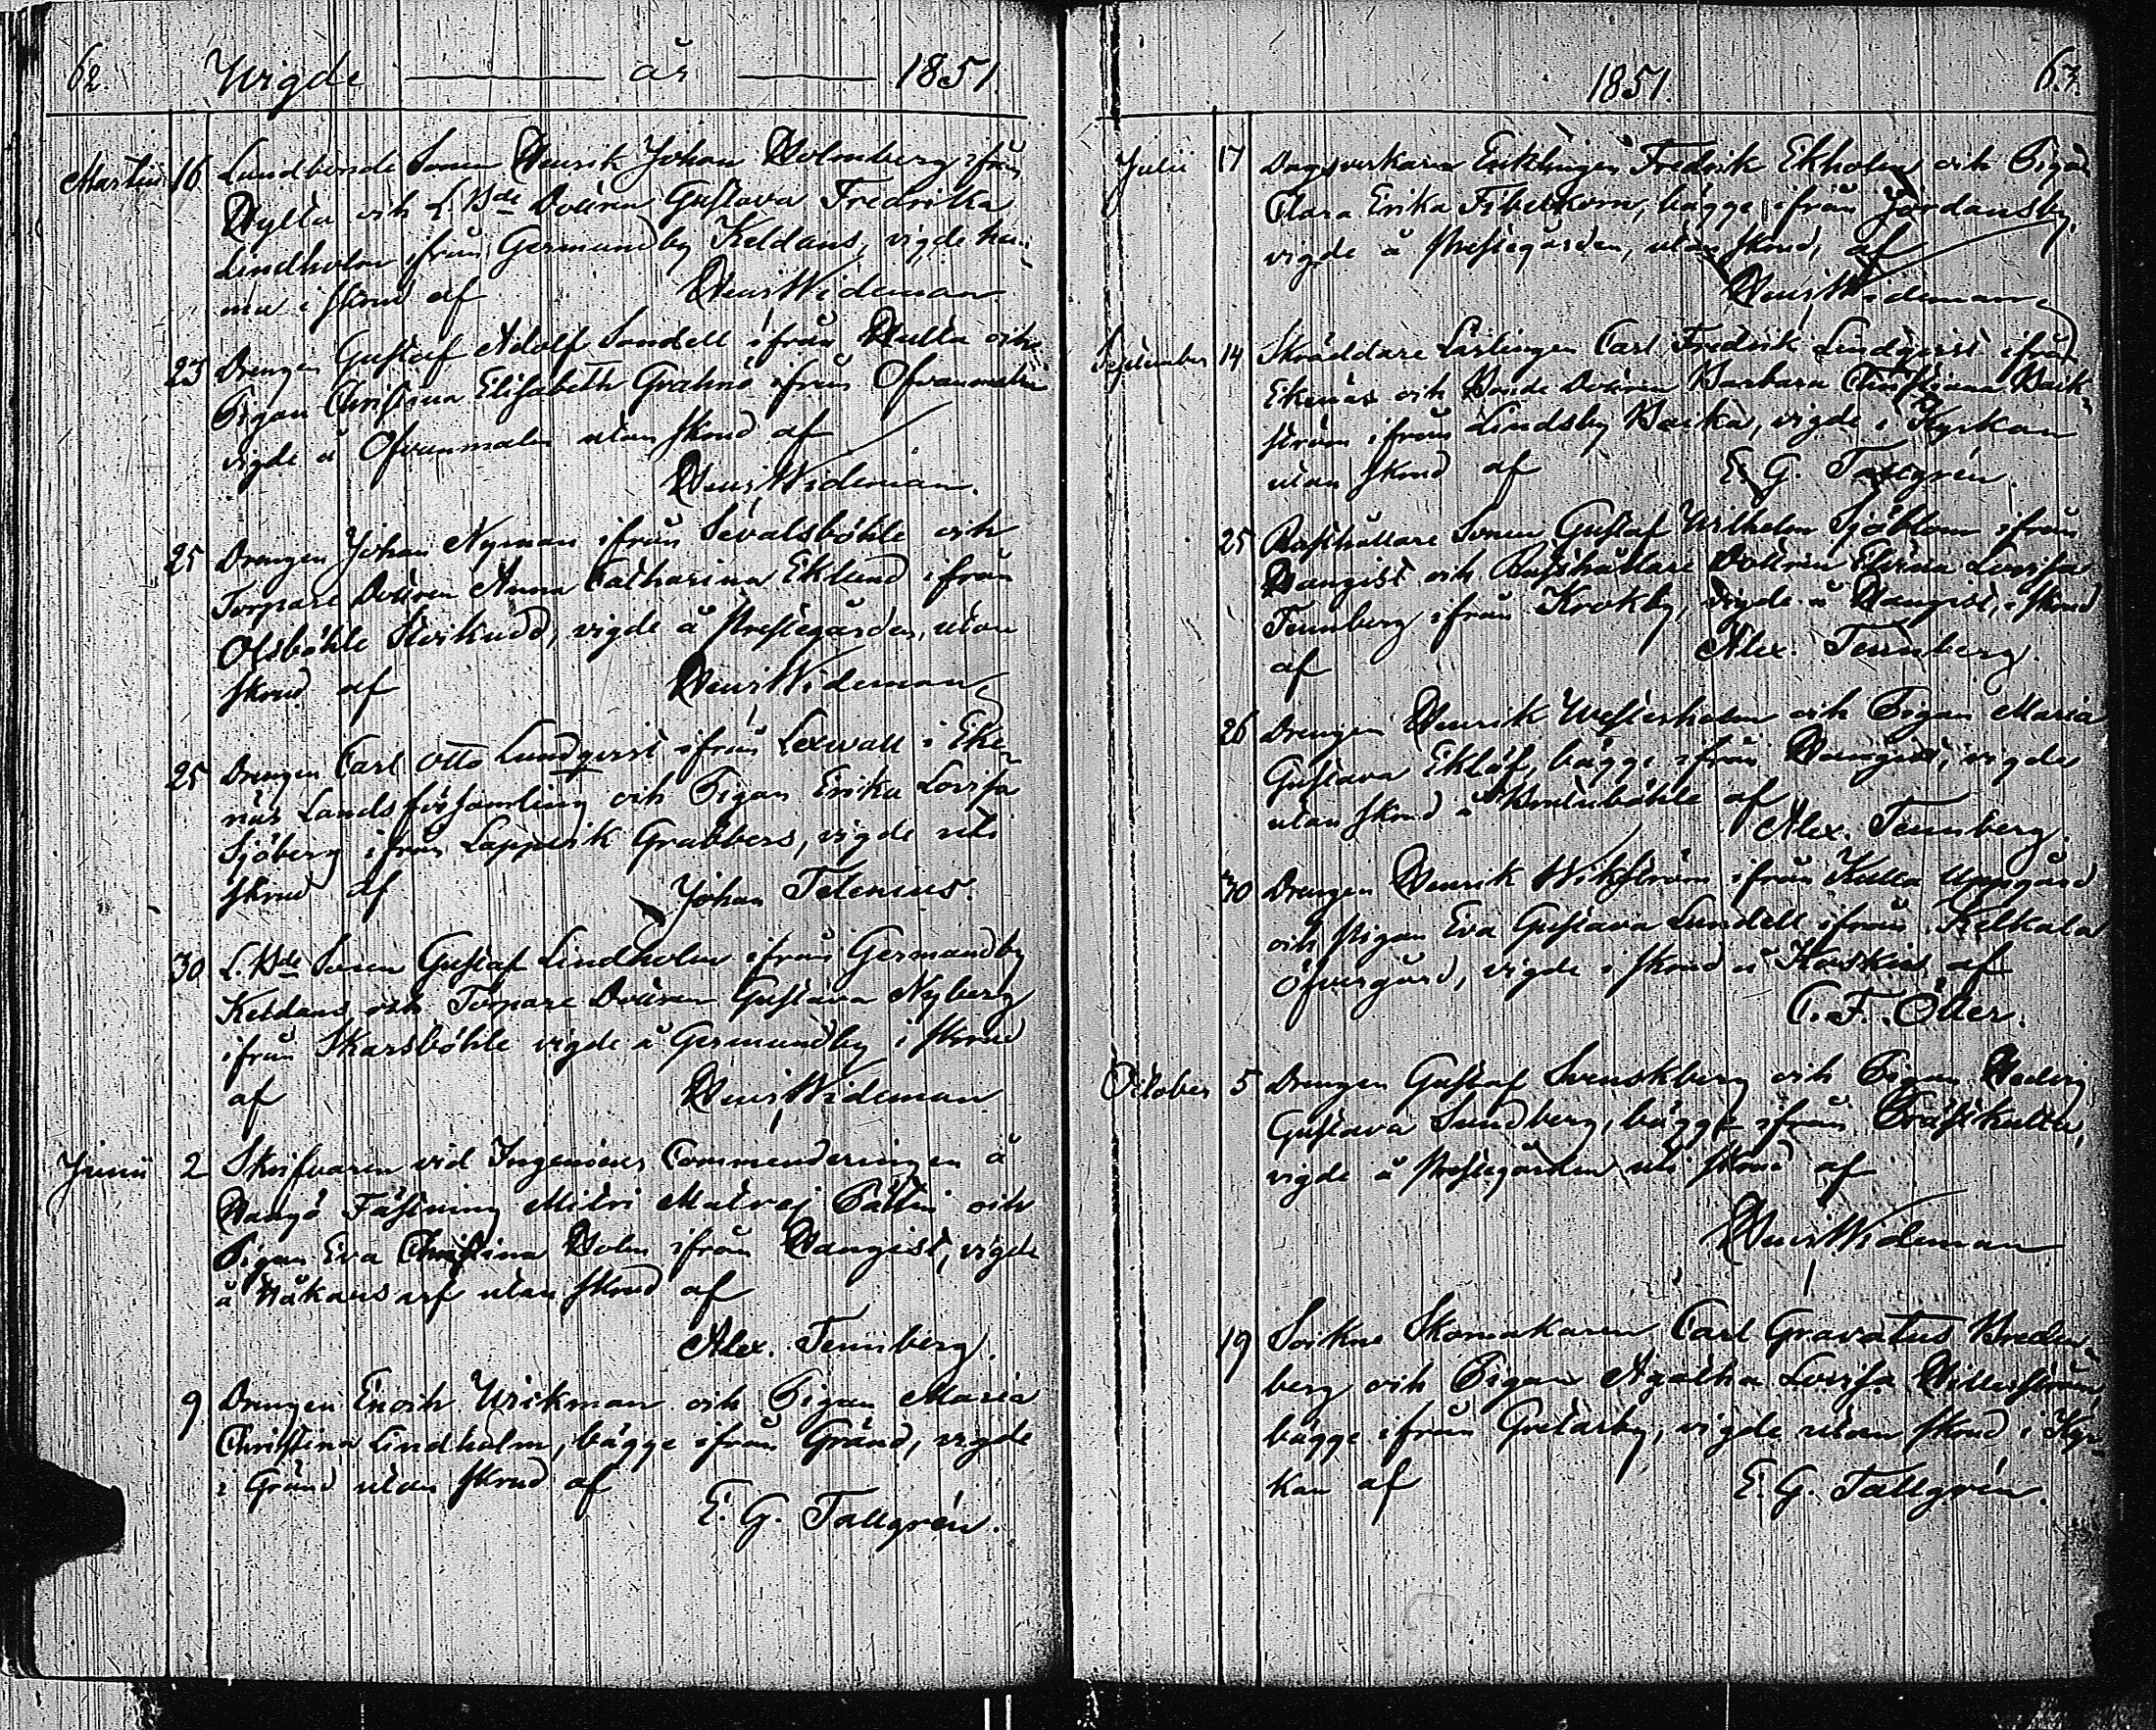 62. Wigde år 1851.
Martii 16 Landbonde Sonen Henrik Johan Holmberg ifrån
Hylta och L. Bde Dottren Gustava Fredrika
Lindholm ifrån Germundby Keldans, vigde hem-
ma i skrud af Henr Wideman.
23 Drengen Gustaf Adolf Sandell ifrån Hulta och
Pigan Christina Elisabeth Grahnö ifrån Ofvanmalm
vigde å Ofvanmalm utan skrud af
Henr Wideman.
25 Drengen Johan Nyman ifrån Sevalsböhle och
Torpare Dottren Anna Catharina Eklund ifrån
Olsböhle, vigde å Prestegården, utan
skrud af Henr Wideman
25 Drengen Carl Otto Lundqvist ifrån Lexwall i Eke-
näs Landsförsamling och Pigan Erika Lovisa
Sjöberg ifrån Lappvik Grabbers, vigde uti
skrud af Johan Telenius.
30 L. Bde Sonen Gustaf Lindholm ifrån Germundby
Keldans och Torpare Dottren Gustava Nyberg
ifrån Skarsböhle vigde å Germundby i skrud
af Henr Wideman
Junii 2 Skrifvaren vid Ingenieur Commenderingen å
Hangö Fästning Mitri Matvej Pattin och
Pigan Eva Christina Holm ifrån Hangist, vigde
å Håkansarf utan skrud af
Alex. Tennberg.
9 Drengen Enoch Wikman och Pigan Maria
Christina Lindholm, bägge ifrån Gränd, vigde
i Gränd utan skrud af
E. G. Tallgrén.
1851. 63.
Julii 17 Dagsverkaren Enklingen Fredrik Ekholm och Pigan
Clara Erika Fibelkorn, bägge ifrån Jordansby,
vigde å Prestegården, utan skrud, af
Henr Wideman
September 14 Skräddare Lärlingen Carl Fredrik Lindqvist ifrån
Ekenäs och Bonde Dottren Barbara Christiana Back-
ström ifrån Lindsby Backa, vigde i Kyrkan
utan skrud af E. G. Tallgrén.
25 Rusthållare Sonen Gustaf Wilhelm Sjöblom ifrån
Hangist och Rusthållare Dottren Elvina Lovisa
Tennberg ifrån Krokby, vigde å Hangist, i skrud
af Alex. Tennberg.
26 Drengen Henrik Westerholm och Pigan Maria
Gustava Eklöf, bägge ifrån Hangist, vigde
utan skrud å af
Alex. Tennberg.
30 Drengen Henrik Wikström ifrån Kulla Uppgård
och Pigan Eva Gustava Lundell ifrån Kelkala
Öfvergård, vigde i skrud å Koskis af
C. F. Öller.
October 5 Drengen Gustaf Svenskberg och Pigan Hedvig
Gustava Sundberg, bägge ifrån Träskkulla,
vigde å Prestegården uti skrud af
Henr Wideman
19 Sockne Skomakaren Carl Gravatus Breden-
berg och Pigan Agatha Lovisa Hillerström
bägge ifrån Gretarby, vigde utan skrud i Kyr-
kan af E. G. Tallgrén.